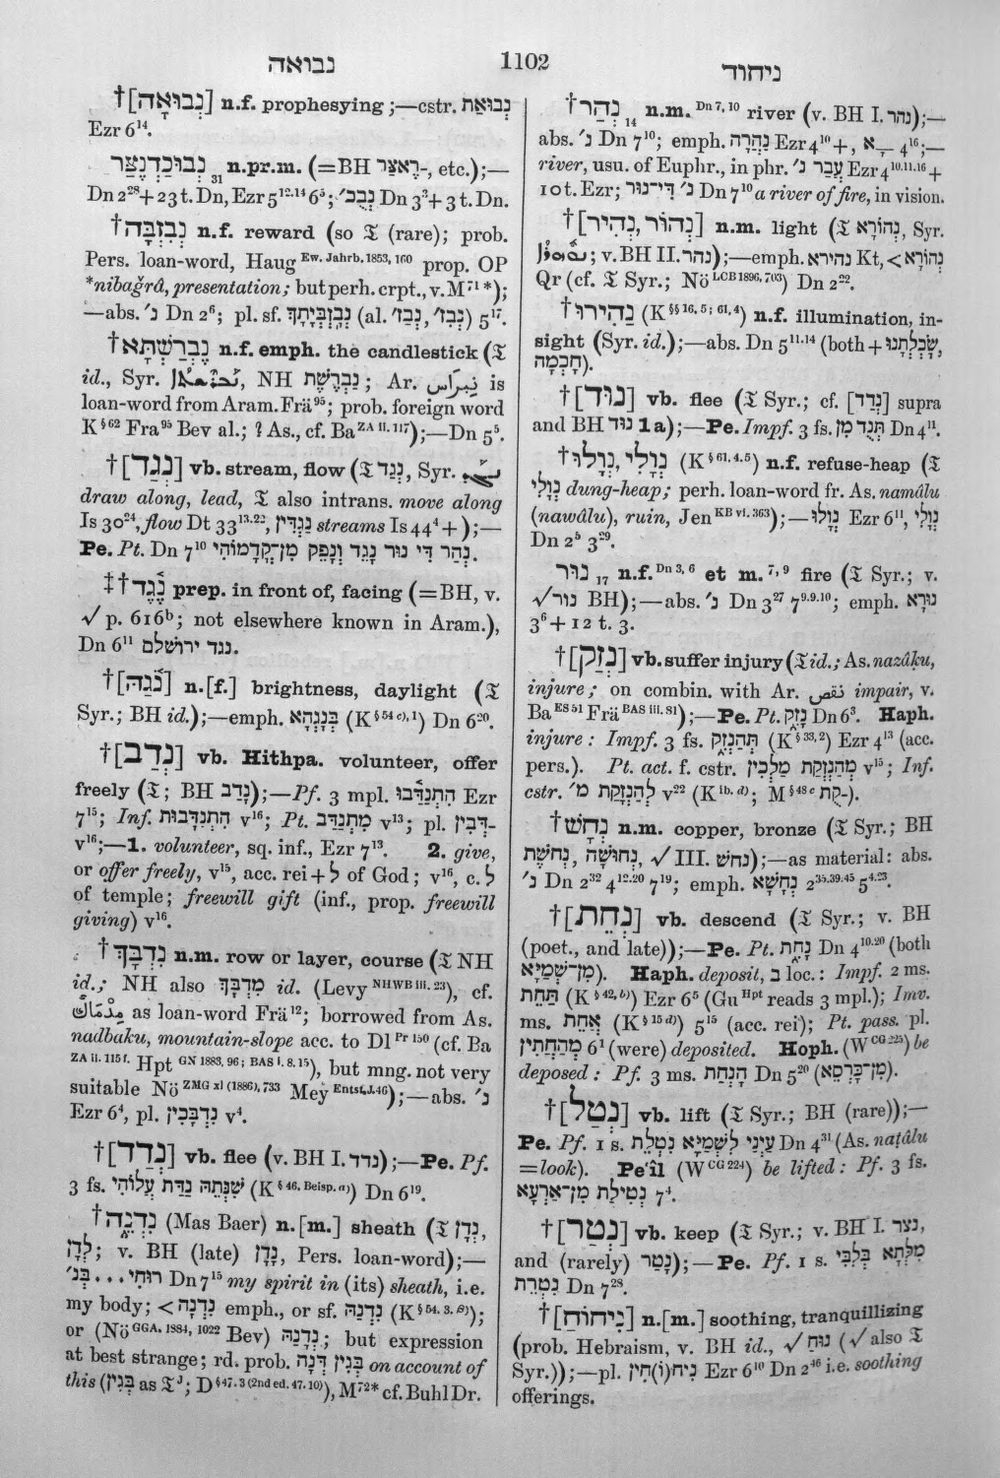 נבואה 1102 ניחוד
†[נְבוּאָה] n.f. prophesying ;—cstr. נְבוּאַת
Ezr 6¹⁴.
נְבוּכַדְנֶצַּר ₃₁ n.pr.m. (=BH רֶאצַּר-, etc.);—
Dn 2²⁸+23 t. Dn, Ezr 5¹²·¹⁴ 6⁵; נְבֻכ׳ Dn 3²+3 t. Dn.
†נְבִזְבָּה n.f. reward (so 𝔗 (rare); prob.
Pers. loan-word, Haug Ew. Jahrb. 1853, 160 prop. OP
*nibağrâ, presentation; but perh. crpt., v. M⁷¹*);
—abs. נ׳ Dn 2⁶; pl. sf. נְבָזְבְּיָתָךְ (al. נְבִזְ׳, נְבַז׳) 5¹⁷.
†נֶבְרַשְׁתָּא n.f. emph. the candlestick (𝔗
id., Syr. NH נִבְרֶשֶׁת; Ar. نِبراس is
loan-word from Aram. Frä⁹⁵; prob. foreign word
K§⁶² Fra⁹⁵ Bev al.; ? As., cf. Ba ZA ii. 117);—Dn 5⁵.
†[נְגַד] vb. stream, flow (𝔗 נְגַד, Syr.
draw along, lead, 𝔗 also intrans. move along
Is 30²⁴, flow Dt 33¹³·²², נָגְדִין streams Is 44⁴+);—
Pe. Pt. Dn 7¹⁰ נְהַר דִּי נוּר נָגֵד וְנָפֵק מִן־קֳדָמוֹהִי.
‡†נֶגֶד prep. in front of, facing (=BH, v.
√ p. 616ᵇ; not elsewhere known in Aram.),
Dn 6¹¹ נגד ירושלם.
†[נֹגַהּ] n.[f.] brightness, daylight (𝔗
Syr.; BH id.);—emph. נָגְהָא (K§⁵⁴ ᶜ⁾·¹) Dn 6²⁰.
†[נְדַב] vb. Hithpa. volunteer, offer
freely (𝔗; BH נָדַב);—Pf. 3 mpl. הִתְנַדַּבוּ Ezr
7¹⁵; Inf. הִתְנַדָּבוּת v¹⁶; Pt. מִתְנַדַּב v¹³; pl. דְּבִין-
v¹⁶;—1. volunteer, sq. inf., Ezr 7¹³. 2. give,
or offer freely, v¹⁵, acc. rei + לְ of God; v¹⁶, c. לְ
of temple; freewill gift (inf., prop. freewill
giving) v¹⁶.
†נִדְבָּךְ n.m. row or layer, course (𝔗 NH
id.; NH also מִדְבָּךְ id. (Levy NHWB iii. 23), cf.
as loan-word Frä¹²; borrowed from As.
nadbaku, mountain-slope acc. to Dl Pr 150 (cf. Ba
ZA ii. 115 f. Hpt GN 1883, 96; BAS i. 8. 15), but mng. not very
suitable Nö ZMG xl (1886), 733 Mey Entst. J. 46);—abs. נ׳
Ezr 6⁴, pl. נִדְבָּכִין v⁴.
†[נְדַד] vb. flee (v. BH I. נדד);—Pe. Pf.
3 fs. שִׁנְתֵּהּ נַדַּת עֲלוֹהִי (K§ 46, Beisp. a)) Dn 6¹⁹.
†נִדְנֶה (Mas Baer) n.[m.] sheath (𝔗 נְדָן,
לְדָן; v. BH (late) נָדָן, Pers. loan-word);—
רוּחִי ... בְּנ׳ Dn 7¹⁵ my spirit in (its) sheath, i.e.
my body; < נִדְנָה emph., or sf. נִדְנַהּ (K§ 54. 3. β));
or (Nö GGA. 1884, 1022 Bev) נְדָנַהּ; but expression
at best strange; rd. prob. בְּגִין דְּנָה on account of
this (בְּגִין as 𝔗ᴶ; D§ 47. 3 (2nd ed. 47. 10)), M⁷²* cf. Buhl Dr.
†נְהַר ₁₄ n.m. Dn 7, 10 river (v. BH I. נהר);—
abs. נ׳ Dn 7¹⁰; emph. נַהֲרָה Ezr 4¹⁰+, א— 4¹⁶;—
river, usu. of Euphr., in phr. עֲבַר נ׳ Ezr 4¹⁰·¹¹·¹⁶+
10 t. Ezr; נ׳ דִּי־נוּר Dn 7¹⁰ a river of fire, in vision.
†[נְהוֹר, נְהִיר] n.m. light (𝔗 נְהוֹרָא, Syr.
v. BH II. נהר);—emph. נהירא Kt, < נְהוֹרָא
Qr (cf. 𝔗 Syr.; Nö LCB 1896, 703) Dn 2²².
†נַהִירוּ (K§§ 16, 5; 61, 4) n.f. illumination, in-
sight (Syr. id.);—abs. Dn 5¹¹·¹⁴ (both + שָׂכְלְתָנוּ,
חָכְמָה).
†[נוּד] vb. flee (𝔗 Syr.; cf. [נְדַד] supra
and BH נוּד 1 a);—Pe. Impf. 3 fs. תְּנֻד מִן Dn 4¹¹.
†נְוָלִי, נְוָלוּ (K§ 61. 4. 5) n.f. refuse-heap (𝔗
נְוָלִי dung-heap; perh. loan-word fr. As. namâlu
(nawâlu), ruin, Jen KB vi. 363);—נְוָלוּ Ezr 6¹¹, נְוָלִי
Dn 2⁵ 3²⁹.
נוּר ₁₇ n.f. Dn 3, 6 et m. 7, 9 fire (𝔗 Syr.; v.
√נור BH);—abs. נ׳ Dn 3²⁷ 7⁹·⁹·¹⁰; emph. נוּרָא
3⁶+12 t. 3.
†[נְזַק] vb. suffer injury (𝔗 id.; As. nazâḳu,
injure; on combin. with Ar. نقص impair, v.
Ba ES 51 Frä BAS iii. 81);—Pe. Pt. נָזִק Dn 6³. Haph.
injure: Impf. 3 fs. תְּהַנְזִק (K§ 33, 2) Ezr 4¹³ (acc.
pers.). Pt. act. f. cstr. מְהַנְזְקַת מַלְכִין v¹⁵; Inf.
cstr. לְהַנְזָקַת מ׳ v²² (K ib. d); M§ 48 c נִקַת-).
†נְחָשׁ n.m. copper, bronze (𝔗 Syr.; BH
נְחֹשֶׁת, נְחוּשָׁה, √III. נחשׁ);—as material: abs.
נ׳ Dn 2³² 4¹²·²⁰ 7¹⁹; emph. נְחָשָׁא 2³⁵·³⁹·⁴⁵ 5⁴·²³.
†[נְחֵת] vb. descend (𝔗 Syr.; v. BH
(poet., and late));—Pe. Pt. נָחִת Dn 4¹⁰·²⁰ (both
מִן־שְׁמַיָּא). Haph. deposit, בְּ loc.: Impf. 2 ms.
תַּחֵת (K§ 42, b)) Ezr 6⁵ (Gu Hpt reads 3 mpl.); Imv.
ms. אֲחֵת (K§ 15 d)) 5¹⁵ (acc. rei); Pt. pass. pl.
מְהַחֲתִין 6¹ (were) deposited. Hoph. (W CG 225) be
deposed: Pf. 3 ms. הָנְחַת Dn 5²⁰ (מִן־כָּרְסֵא).
†[נְטַל] vb. lift (𝔗 Syr.; BH (rare));—
Pe. Pf. 1 s. עַיְנַי לִשְׁמַיָּא נִטְלֵת Dn 4³¹ (As. naṭâlu
=look). Pe‛îl (W CG 224) be lifted: Pf. 3 fs.
נְטִילַת מִן־אַרְעָא 7⁴.
†[נְטַר] vb. keep (𝔗 Syr.; v. BH I. נצר,
and (rarely) נָטַר);—Pe. Pf. 1 s. מִלְּתָא בְּלִבִּי
נִטְרֵת Dn 7²⁸.
†[נִיחוֹחַ] n.[m.] soothing, tranquillizing
(prob. Hebraism, v. BH id., √נוּחַ (√ also 𝔗
Syr.));—pl. נִיח(וֹ)חִין Ezr 6¹⁰ Dn 2⁴⁶ i.e. soothing
offerings.